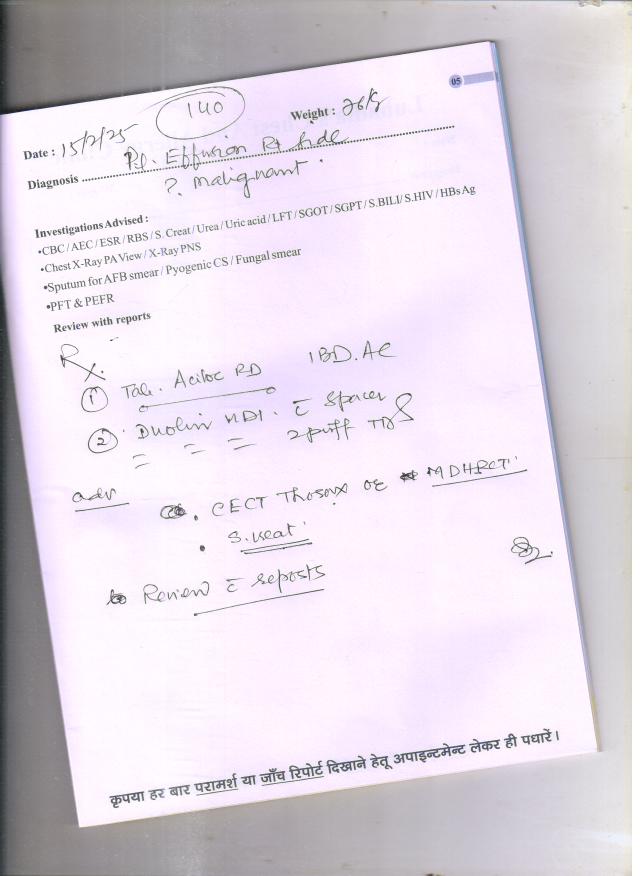 05
140
Date : 15/2/25 Weight :
Diagnosis .......... Pl. Effusion Rt side
?. Malignant .
Investigations Advised :
•CBC / AEC / ESR / RBS / S. Creat / Urea / Uric acid / LFT / SGOT / SGPT / S.BILI / S.HIV / HBs Ag
•Chest X-Ray PA View / X-Ray PNS
•Sputum for AFB smear / Pyogenic CS / Fungal smear
•PFT & PEFR
Review with reports
Rx.
① Tab. Aciloc RD 1 BD. AC
② Duolin MDI. c̄ Spacer
= = = 2 puff TDS
adv
. CECT Thorax or MDHRCT
. S. Creat
Review c̄ reports
कृपया हर बार परामर्श या जाँच रिपोर्ट दिखाने हेतू अपाइन्टमेन्ट लेकर ही पधारें।